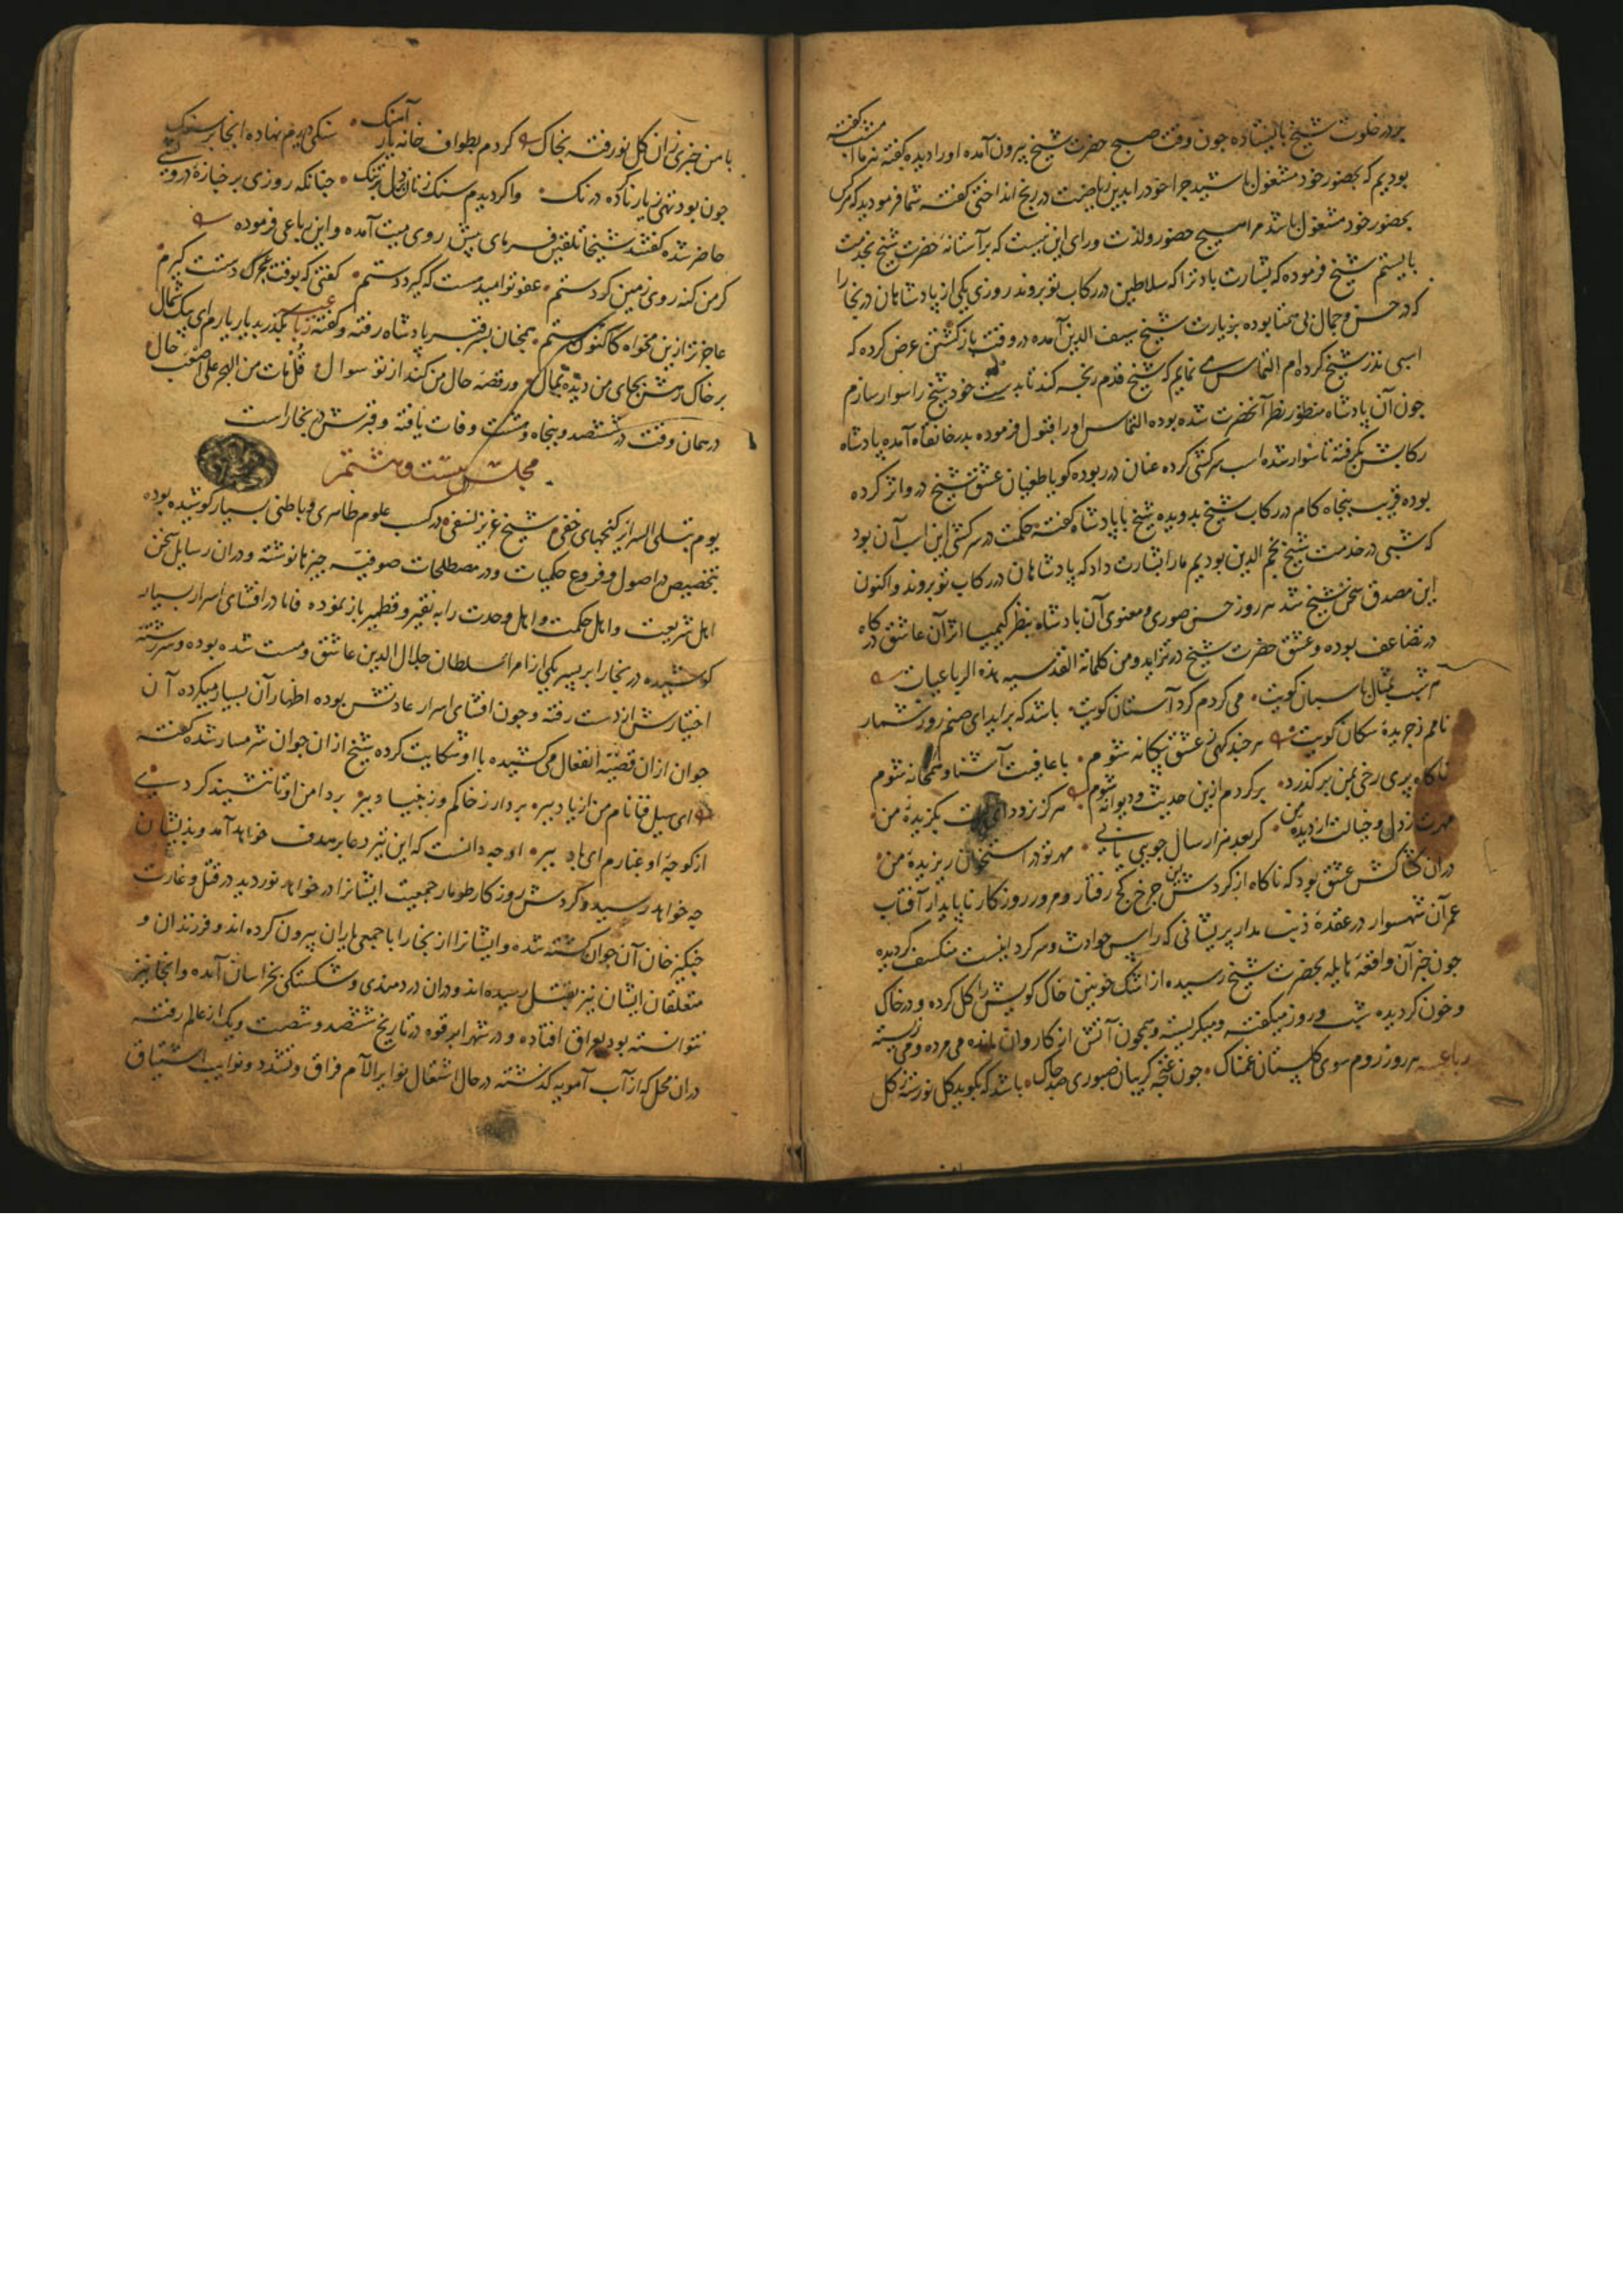 بر در خلوت شیخ بایستاده چون وقت صبح حضرت شیخ بیرون آمده او را دیده گفته نه ما امشب گفته
بودیم که بحضور خود مشغول باشید چرا خود را بدین ریاضت در رنج انداختی گفته شما فرمودید که هر کس
بحضور خود مشغول باشد مرا هیچ حضور و لذت ورای این نیست که بر آستانه حضرت شیخ بخدمت
بایستم شیخ فرموده که بشارت باد ترا که سلاطین در رکاب تو بروند روزی یکی از پادشاهان در بخارا
که در حسن و جمال بی همتا بوده بزیارت شیخ سیف الدین آمده در وقت بازگشتن عرض کرده که
اسبی نذر شیخ کرده ام التماس می نمایم که شیخ قدم رنجه کند تا بدست خود شیخ را سوار سازم
چون آن پادشاه منظور نظر آنحضرت شده بوده التماس او را قبول فرموده بدر خانقاه آمده پادشاه
رکابش بگرفته تا سوار شده اسب سرکشی کرده عنان در ربوده گویا طغیان عشق شیخ در و اثر کرده
بوده قریب پنجاه کام در رکاب شیخ بدویده شیخ با پادشاه گفته حکمت در سرکشی این اسب آن بود
که شبی در خدمت شیخ نجم الدین بودیم ما را بشارت داد که پادشاهان در رکاب تو بروند و اکنون
این مصدق سخن شیخ شد هر روز حسن صوری و معنوی آن پادشاه بنظر کیمیا اثر آن عاشق کاه
در تضاعف بوده و عشق حضرت شیخ در تزاید و من کلماته القدسیه هذه الرباعیات
هر شب بمثال پاسبان کویت می کردم کرد آستان کویت باشد که برآید ای صنم روز شمار
نامم ز جریده سکان کویت هر چند کهی ز عشق بیکانه شوم با عافیت آشنا و همخانه شوم
ناکاه پری رخی بمن بر کذرد بر کردم ازین حدیث و دیوانه شوم هرکز نرود ای بت بکزیده من
مهرت ز دل و خیالت از دیده من کر بعد هزار سال جویی یابی مهر تو در استخوان ریزیده من
در آن کشاکش عشق بود که ناکاه از کردش این چرخ کج رفتار و مرور روزکار ناپایدار آفتاب
عمر آن شهسوار در عقده ذنب مدار پریشانی که راس حوادث و سرکرد نیست منکسف کردیده
چون خبر آن واقعه هایله بحضرت شیخ رسیده از اشک خونین خاک کویش را کل کرده و در خاک
و خون کردیده شب و روز میکفته و میکریسته و همچون آتش از کاروان مانده می مرده و می زیسته
رباعیه هر روز روم سوی کلستان غمناک چون غنچه کریبان صبوری صد چاک باشد که بکوید کل نورسته ز کل
با من خبری زان کل نو رفته بخاک کردم بطواف خانه یار آهنک سنکی دیدم نهاده آنجا بر سنک
چون بود تهی ز یار نا کرده درنک وا کردیدم سنک زنان بر دل تنک چنانکه روزی بر جنازه درویشی
حاضر شده گفتند شیخا تلقین فرمای پیش روی میت آمده و این رباعی فرموده
کر من کنه روی زمین کردستم عفو تو امیدست که کیرد دستم کفتی که بوقت عجز دستت کیرم
عاجز تر ازین مخواه کاکنون هستم همچنان بر قبر پادشاه رفته و گفته رباعی بکذر بدیار یارم ای پیک شمال
بر خاک رهش بجای من دیده بمال ور قصه حال من کند از تو سوال قل مات من الهجر علی اصعب حال
در همان وقت در ششصد و پنجاه و هشت وفات یافته و قبرش در بخاراست
مجلس بیست و هشتم
یوم تبلی السرائر کنجهای خفی شیخ عزیز نسفی در کسب علوم ظاهری و باطنی بسیار کوشیده بوده
بتخصیص در اصول و فروع حکمیات و در مصطلحات صوفیه چیزها نوشته و در آن رسایل سخن
اهل شریعت و اهل حکمت و اهل وحدت را به نقیر و قطمیر باز نموده فاما در افشای اسرار بسیار
کوشیده در بخارا بر پسر یکی از امراء سلطان جلال الدین عاشق و مست شده بوده و سررشته
اختیارش از دست رفته و چون افشای اسرار عادتش بوده اظهار آن بسیار میکرده آن
جوان از آن قضیه انفعال می کشیده با او شکایت کرده شیخ از آن جوان شرمسار شده گفته
ای سیل فنا نام من از یاد ببر بردار ز خاکم و ز بنیاد ببر بر دامن او تا ننشیند کردی
از کوچه او غبارم ای باد ببر او چه دانست که این تیر دعا بر هدف خواهد آمد و بدیشان
چه خواهد رسید و کردش روزکار طومار جمعیت ایشانرا در خواهد نوردید در قتل و غارت
چنکیز خان آن جوان کشته شده و ایشانرا از بخارا با جمعی یاران بیرون کرده اند و فرزندان و
متعلقان ایشان نیز بقتل رسیده اند و در آن دردمندی و شکستکی بخراسان آمده و آنجا نیز
نتوانسته بود بعراق افتاده و در شهر ابرقوه در تاریخ ششصد و شصت و یک از عالم رفته
در آن محل که از آب آمویه کذشته در حال اشتعال نوایر آلام فراق و تشدد نوایب اشتیاق